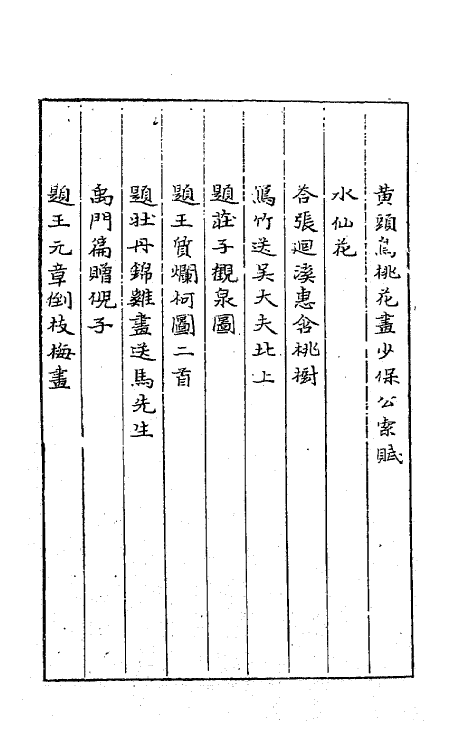 黄頭鳥桃花畫少保公索賦
水仙花
答張迴溪惠含桃樹
鴈竹送吳大夫北上
題莊子觀泉圖
題王質爛柯圖二首
題牡丹錦雞畫送馬先生
禹門篇贈硯子
題王元章倒枝梅畫